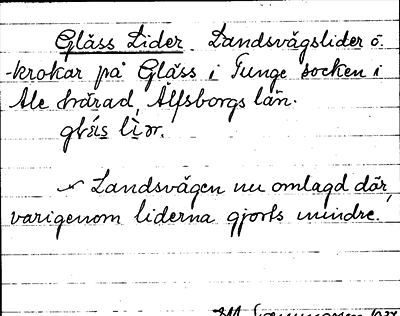 Gläss Lider. Landsvägslider o.
-krokar på Gläss i Tunge socken i
Ale härad, Älfsborgs län.
Landsvägen nu omlagd där,
varigenom liderna gjorts mindre.